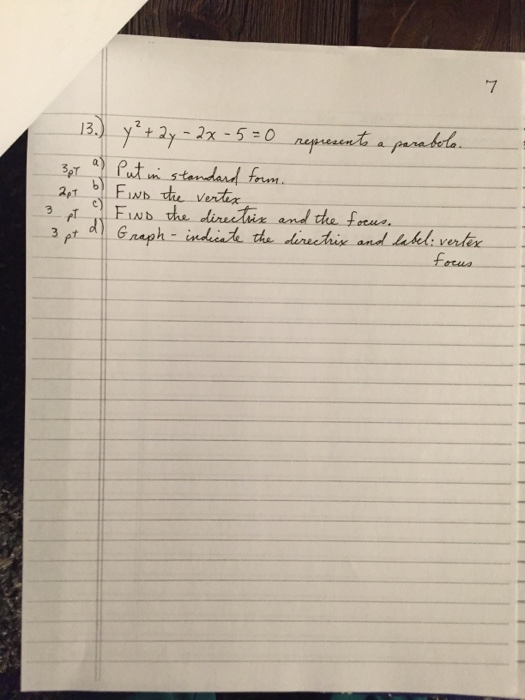 7
13.) y² + 2y - 2x - 5 = 0 represents a parabola.
3pT a) Put in standard form.
2pT b) FIND the vertex
3 pT c) FIND the directrix and the focus.
3 pt d) Graph - indicate the directrix and label: vertex
focus